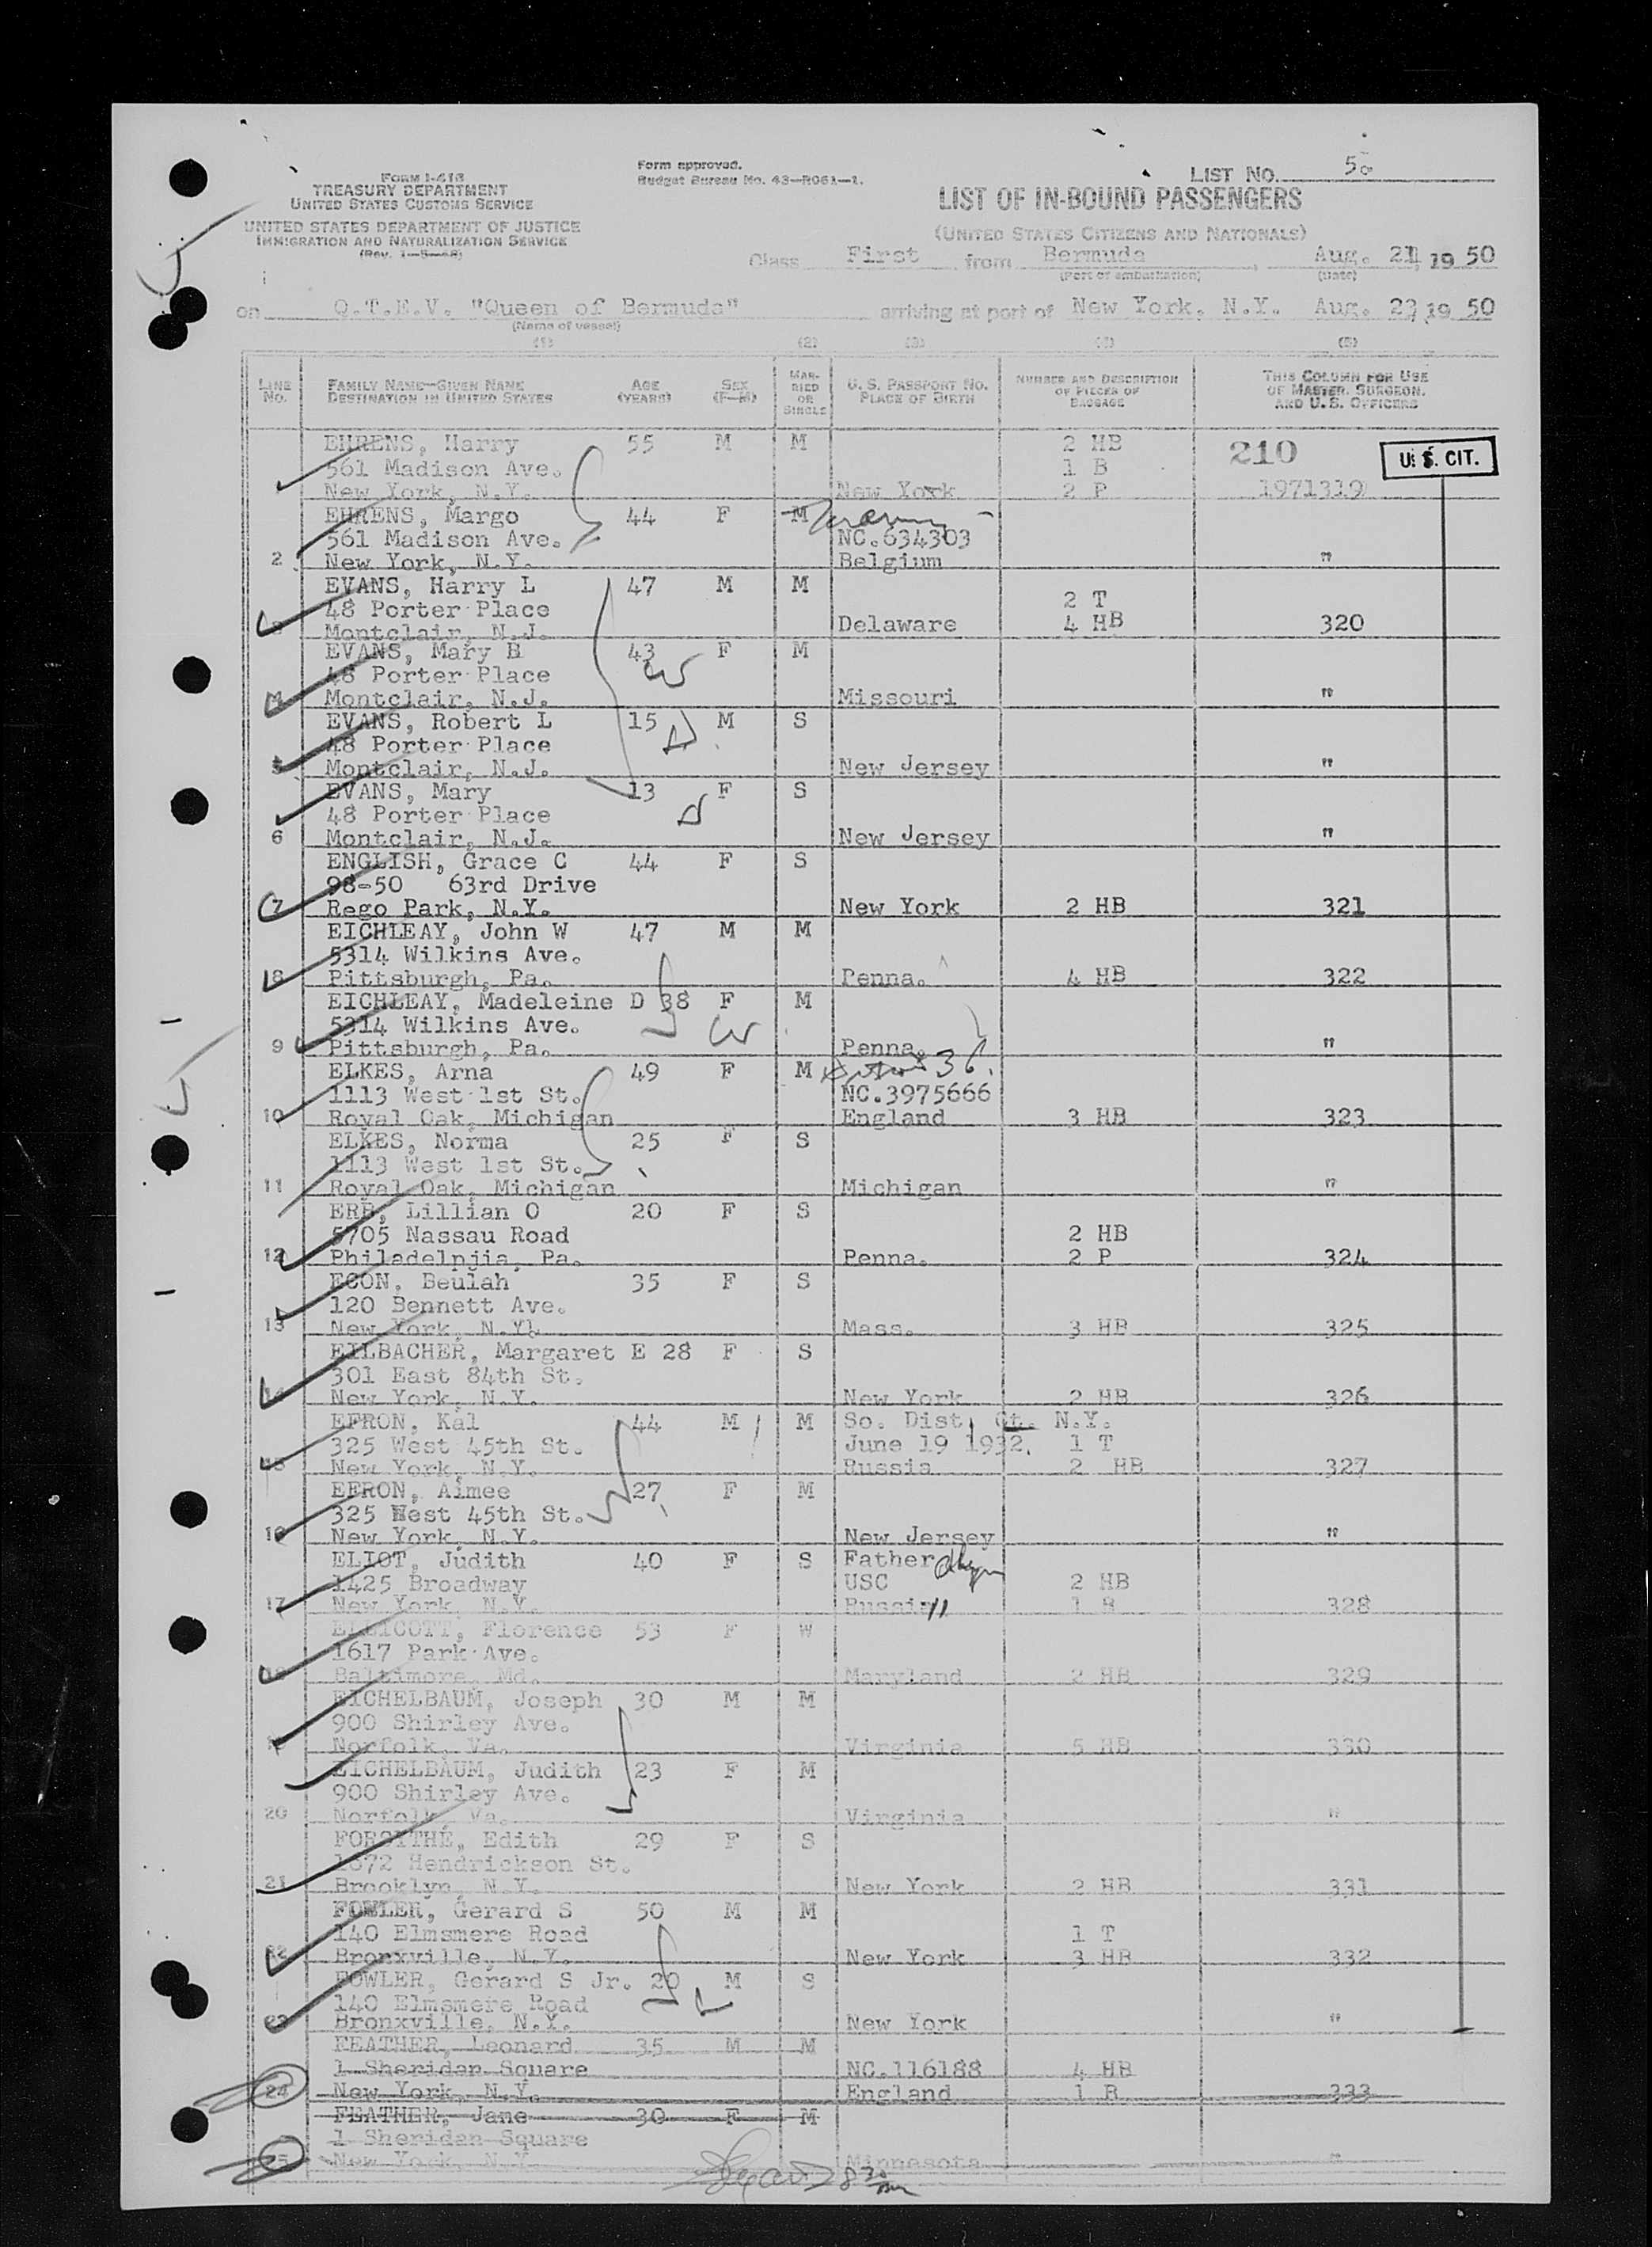 FORM I-418
TREASURY DEPARTMENT
UNITED STATES CUSTOMS SERVICE
UNITED STATES DEPARTMENT OF JUSTICE
IMMIGRATION AND NATURALIZATION SERVICE
(Rev. 1—5—48)
Form approved.
Budget Bureau No. 43—R061—1.
LIST NO. 58
LIST OF IN-BOUND PASSENGERS
(UNITED STATES CITIZENS AND NATIONALS)
Class First from Bermuda, Aug. 21, 19 50
(Port of embarkation) (Date)
on Q.T.E.V. "Queen of Bermuda" arriving at port of New York, N.Y. Aug. 23, 19 50
(Name of vessel)
(1) (2) (3) (4) (5)
LINE No. FAMILY NAME—GIVEN NAME DESTINATION IN UNITED STATES AGE (YEARS) SEX (F—M) MARRIED OR SINGLE U. S. PASSPORT NO. PLACE OF BIRTH NUMBER AND DESCRIPTION OF PIECES OF BAGGAGE THIS COLUMN FOR USE OF MASTER, SURGEON, AND U. S. OFFICERS
EHRENS, Harry 55 M M 2 HB 210 U. S. CIT.
561 Madison Ave. 1 B
New York, N.Y. New York 2 P 1971319
EHRENS, Margo 44 F M
561 Madison Ave. NC.634303
2 New York, N.Y. Belgium "
EVANS, Harry L 47 M M
48 Porter Place 2 T
3 Montclair, N.J. Delaware 4 HB 320
EVANS, Mary B 43 F M
48 Porter Place W
4 Montclair, N.J. Missouri "
EVANS, Robert L 15 M S
48 Porter Place
5 Montclair, N.J. New Jersey "
EVANS, Mary 13 F S
48 Porter Place
6 Montclair, N.J. New Jersey "
ENGLISH, Grace C 44 F S
98-50 63rd Drive
7 Rego Park, N.Y. New York 2 HB 321
EICHLEAY, John W 47 M M
5314 Wilkins Ave.
8 Pittsburgh, Pa. Penna. 4 HB 322
EICHLEAY, Madeleine D 38 F M
5314 Wilkins Ave. W
9 Pittsburgh, Pa. Penna. "
ELKES, Arna 49 F M 36.
1113 West 1st St. NC.3975666
10 Royal Oak, Michigan England 3 HB 323
ELKES, Norma 25 F S
1113 West 1st St.
11 Royal Oak, Michigan Michigan "
ERB, Lillian O 20 F S
5705 Nassau Road 2 HB
12 Philadelpjia, Pa. Penna. 2 P 324
ECON, Beulah 35 F S
120 Bennett Ave.
13 New York, N.Y. Mass. 3 HB 325
EILBACHER, Margaret E 28 F S
301 East 84th St.
14 New York, N.Y. New York 2 HB 326
EFRON, Kal 44 M M So. Dist. Ct. N.Y.
325 West 45th St. June 19 1932. 1 T
15 New York, N.Y. Russia 2 HB 327
EFRON, Aimee 27 F M
325 West 45th St.
16 New York, N.Y. New Jersey "
ELIOT, Judith 40 F S Father
1425 Broadway USC 2 HB
17 New York, N.Y. Russia 1 B 328
ELLICOTT, Florence 53 F W
1617 Park Ave.
18 Baltimore, Md. Maryland 2 HB 329
EICHELBAUM, Joseph 30 M M
900 Shirley Ave.
19 Norfolk, Va. Virginia 5 HB 330
EICHELBAUM, Judith 23 F M
900 Shirley Ave.
20 Norfolk, Va. Virginia "
FORSYTHE, Edith 29 F S
1672 Hendrickson St.
21 Brooklyn, N.Y. New York 2 HB 331
FOWLER, Gerard S 50 M M
140 Elmsmere Road 1 T
22 Bronxville, N.Y. New York 3 HB 332
FOWLER, Gerard S Jr. 20 M S
140 Elmsmere Road
23 Bronxville, N.Y. New York "
FEATHER, Leonard 35 M M
1 Sheridan Square NC.116188 4 HB
24 New York, N.Y. England 1 B 333
FEATHER, Jane 30 F M
1 Sheridan Square
25 New York, N.Y. Minnesota "